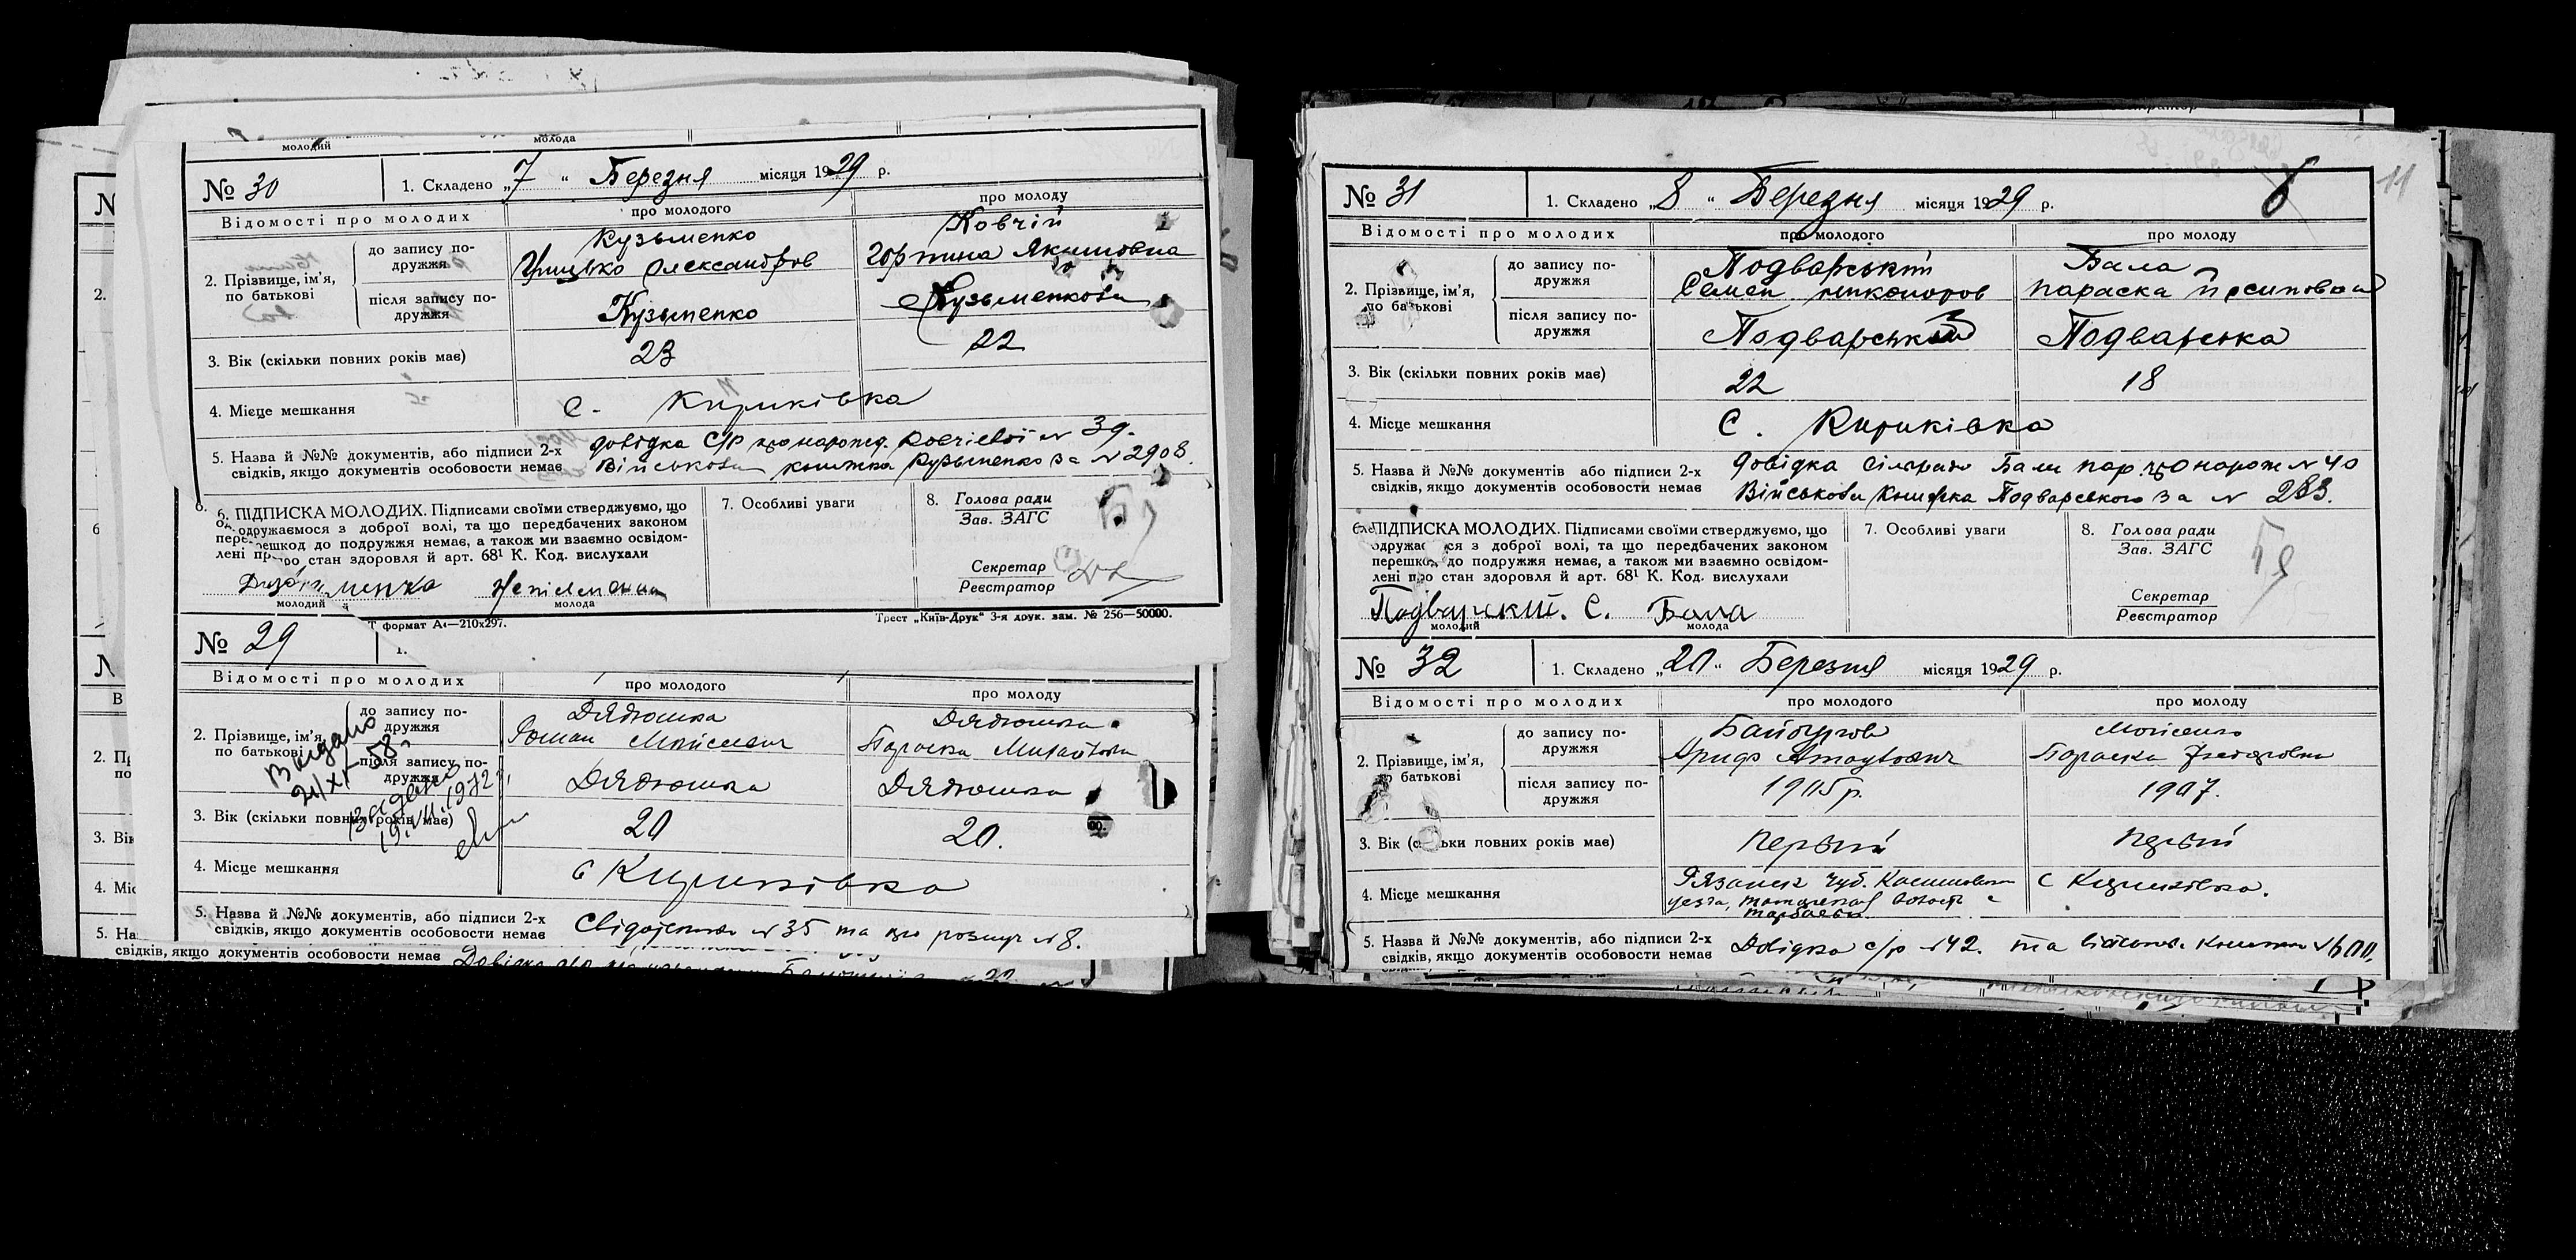 молодий молода
№ 30 1. Складено „7“ Березня місяця 1929 р.
Відомості про молодих про молодого про молоду
2. Прізвище, ім'я, по батькові
до запису по-
дружжя
Кузьменко
Грицько Олександров
Ковчій
Горпина Якимовна
після запису по-
дружжя
Кузьменко
Кузьменкова
3. Вік (скільки повних років має) 23 22
4. Місце мешкання с. Кириківка
5. Назва й №№ документів, або підписи 2-х довідка С/р про народ. Ковчієвої № 39.
свідків, якщо документів особовости немає Військова книжка Кузьменко за № 2908.
6. ПІДПИСКА МОЛОДИХ. Підписами своїми стверджуємо, що
одружаємося з доброї волі, та що передбачених законом
перешкод до подружжя немає, а також ми взаємно освідом-
лені про стан здоровля й арт. 68¹ К. Код. вислухали
молодий молода
7. Особливі уваги
8. Голова ради
Зав. ЗАГС
Секретар
Реєстратор
Т формат А4—210х297.
Трест „Київ-Друк“ 3-я друк. зам. № 256—50000.
№ 29 1.
Відомості про молодих про молодого про молоду
2. Прізвище, ім'я, по батькові
до запису по-
дружжя
Дядюшка
Роман Мойсеевич
Дядюшка
Параска
після запису по-
дружжя
Дядюшка
Дядюшка
Видано
21/XI 58
19.VII.1972
3. Вік (скільки повних років має) 20 20.
4. Місце мешкання с Кириківка
5. Назва й №№ документів, або підписи 2-х
свідків, якщо документів особовости немає
№ 35 та про розлуч № 8.
свідків, якщо документів особовости немає Довідка
№ 31 1. Складено „8“ Березня місяця 1929 р.
6
11
Відомості про молодих про молодого про молоду
2. Прізвище, ім'я, по батькові
до запису по-
дружжя
Подварський
Семен Никоноров
Бала
Параска Йосиповна
після запису по-
дружжя
Подварський
Подварська
3. Вік (скільки повних років має) 22 18
4. Місце мешкання С. Кириківка
5. Назва й №№ документів або підписи 2-х довідка сільради Бали пар. про народж № 40
свідків, якщо документів особовости немає Військова книжка Подварського за № 283.
6. ПІДПИСКА МОЛОДИХ. Підписами своїми стверджуємо, що
одружаємся з доброї волі, та що передбачених законом
перешкод до подружжя немає, а також ми взаємно освідом-
лені про стан здоровля й арт. 68¹ К. Код. вислухали
Подварський. С. Бала
молодий молода
7. Особливі уваги
8. Голова ради
Зав. ЗАГС
Секретар
Реєстратор
№ 32 1. Складено „20“ Березня місяця 1929 р.
Відомості про молодих про молодого про молоду
2. Прізвище, ім'я, по батькові
до запису по-
дружжя
Ариф
Мойсенко
Параска
після запису по-
дружжя
1905 р.
1907.
3. Вік (скільки повних років має) первый первый
4. Місце мешкання
Рязанск губ.
с Кириківка.
5. Назва й №№ документів, або підписи 2-х
свідків, якщо документів особовости немає Довідка с/р № 42. та